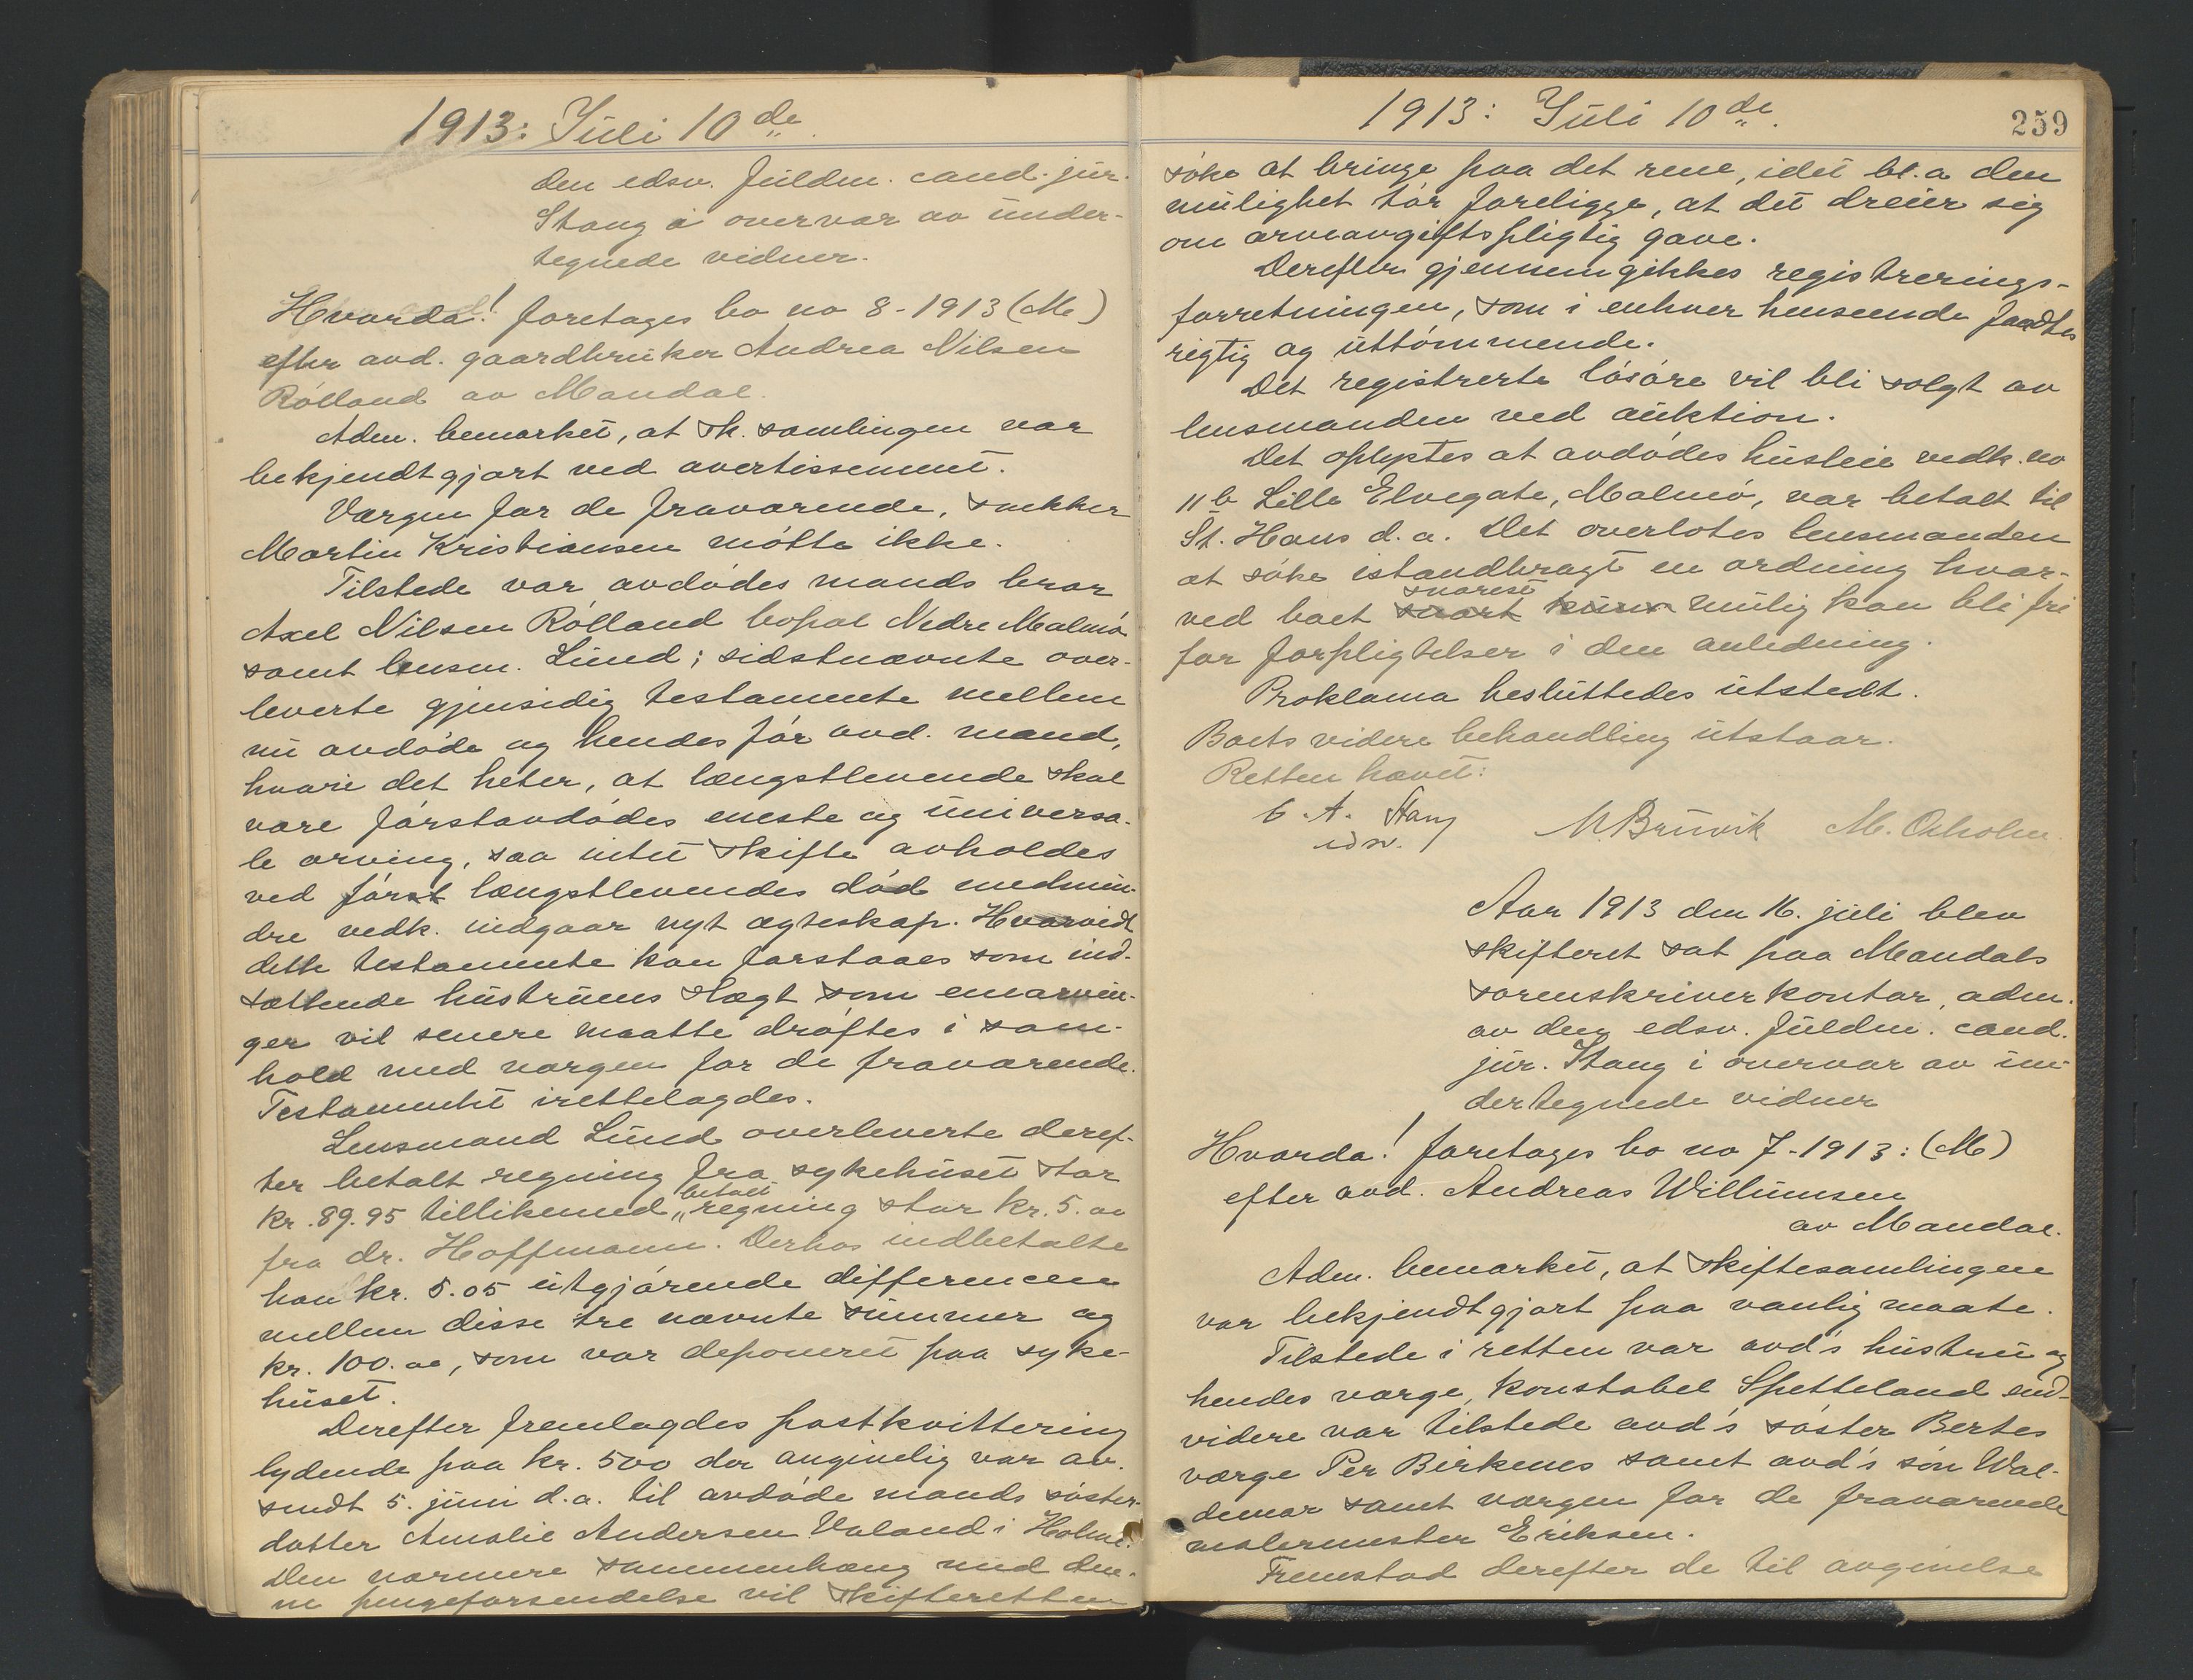 1913: Juli 10de
den edsv. fuldm. cand. jur.
Stang i overvær av under-
tegnede vidner.
Hvorda! foretages bo no 8-1913 (M)
efter avd. gaardbruker Andrea Nilsen
Rölland av Mandal.
Adm. bemærket, at sk. samlingen var
bekjendtgjort ved avertissement.
Værgen for de fraværende, snekker
Martin Kristiansen mötte ikke.
Tilstede var avdödes mands bror
Axel Nilsen Rölland bopæl Nedre Malmö
samt lensm. Lund; sidstnævnte over-
leverte gjensidig testamente mellem
nu avdöde og hendes för avd. mand,
hvori det heter, at længstlevende skal
være förstavdödes eneste og universa-
le arving, saa intet skifte avholdes
ved först længstlevendes död medmin-
dre vedk. indgaar nyt ægteskap. Hvorvidt
dette testamente kan forstaaes som ind-
sættende hustruens slægt som enearvin-
ger vil senere maatte dröftes i sam-
hold med værgen for de fraværende.
Testamentet irettelagdes.
Lensmand Lund overleverte deref-
ter betalt regning fra sykehuset stor
kr. 89.95 tillikemed „ betalt regning stor kr. 5.00
fra dr. Hoffmann. Derhos indbetalte
han kr. 5.05 utgjörende differencen
mellem disse tre nævnte summer og
kr. 100.00, som var deponeret paa syke-
huset.
Derefter fremlagdes postkvittering
lydende paa kr. 500 der angivelig var av-
sendt 5. juni d.a. til avdöde mands söster-
datter Amalie Andersen Valand i Holme.
Den nærmere sammenhæng med den-
ne pengeforsendelse vil skifteretten
1913: Juli 10de.
259
söke at bringe paa det rene, idet bl.a den
mulighet tör foreligge, at det dreier sig
om arveavgiftspligtig gave.
Derefter gjennemgikkes registrerings-
forretningen, som i enhver henseende fandtes
rigtig og uttömmende.
Det registrerte lösöre vil bli solgt av
lensmanden ved auktion.
Det oplystes at avdödes husleie vedk. no
11 b Lille Elvegate, Malmö, var betalt til
St. Hans d.a. Det overlotes lensmanden
at söke istandbragt en ordning hvor-
ved boet snarest snart mulig kan bli fri
for forpligtelser i den anledning.
Proklama besluttedes utstedt.
Boets videre behandling utstaar.
Retten hævet:
C. A. Stang
edsv.
M Bruvik M. Oxholm.
Aar 1913 den 16. juli blev
skifteret sat paa Mandals
sorenskriverkontor, adm.
av den edsv. fuldm. cand.
jur. Stang i overvær av un-
dertegnede vidner
Hvorda! foretages bo no 7-1913: (M)
efter avd. Andreas Willumsen
av Mandal.
Adm. bemærket, at skiftesamlingen
var bekjendtgjort paa vanlig maate.
Tilstede i retten var avd's hustru og
hendes værge, konstabel Spetteland end-
videre var tilstede avd's söster Bertes
værge Per Birkenes samt avd's sön Wal-
demar samt værgen for de fraværende
malermester Eriksen.
Fremstod derefter de til avgivelse